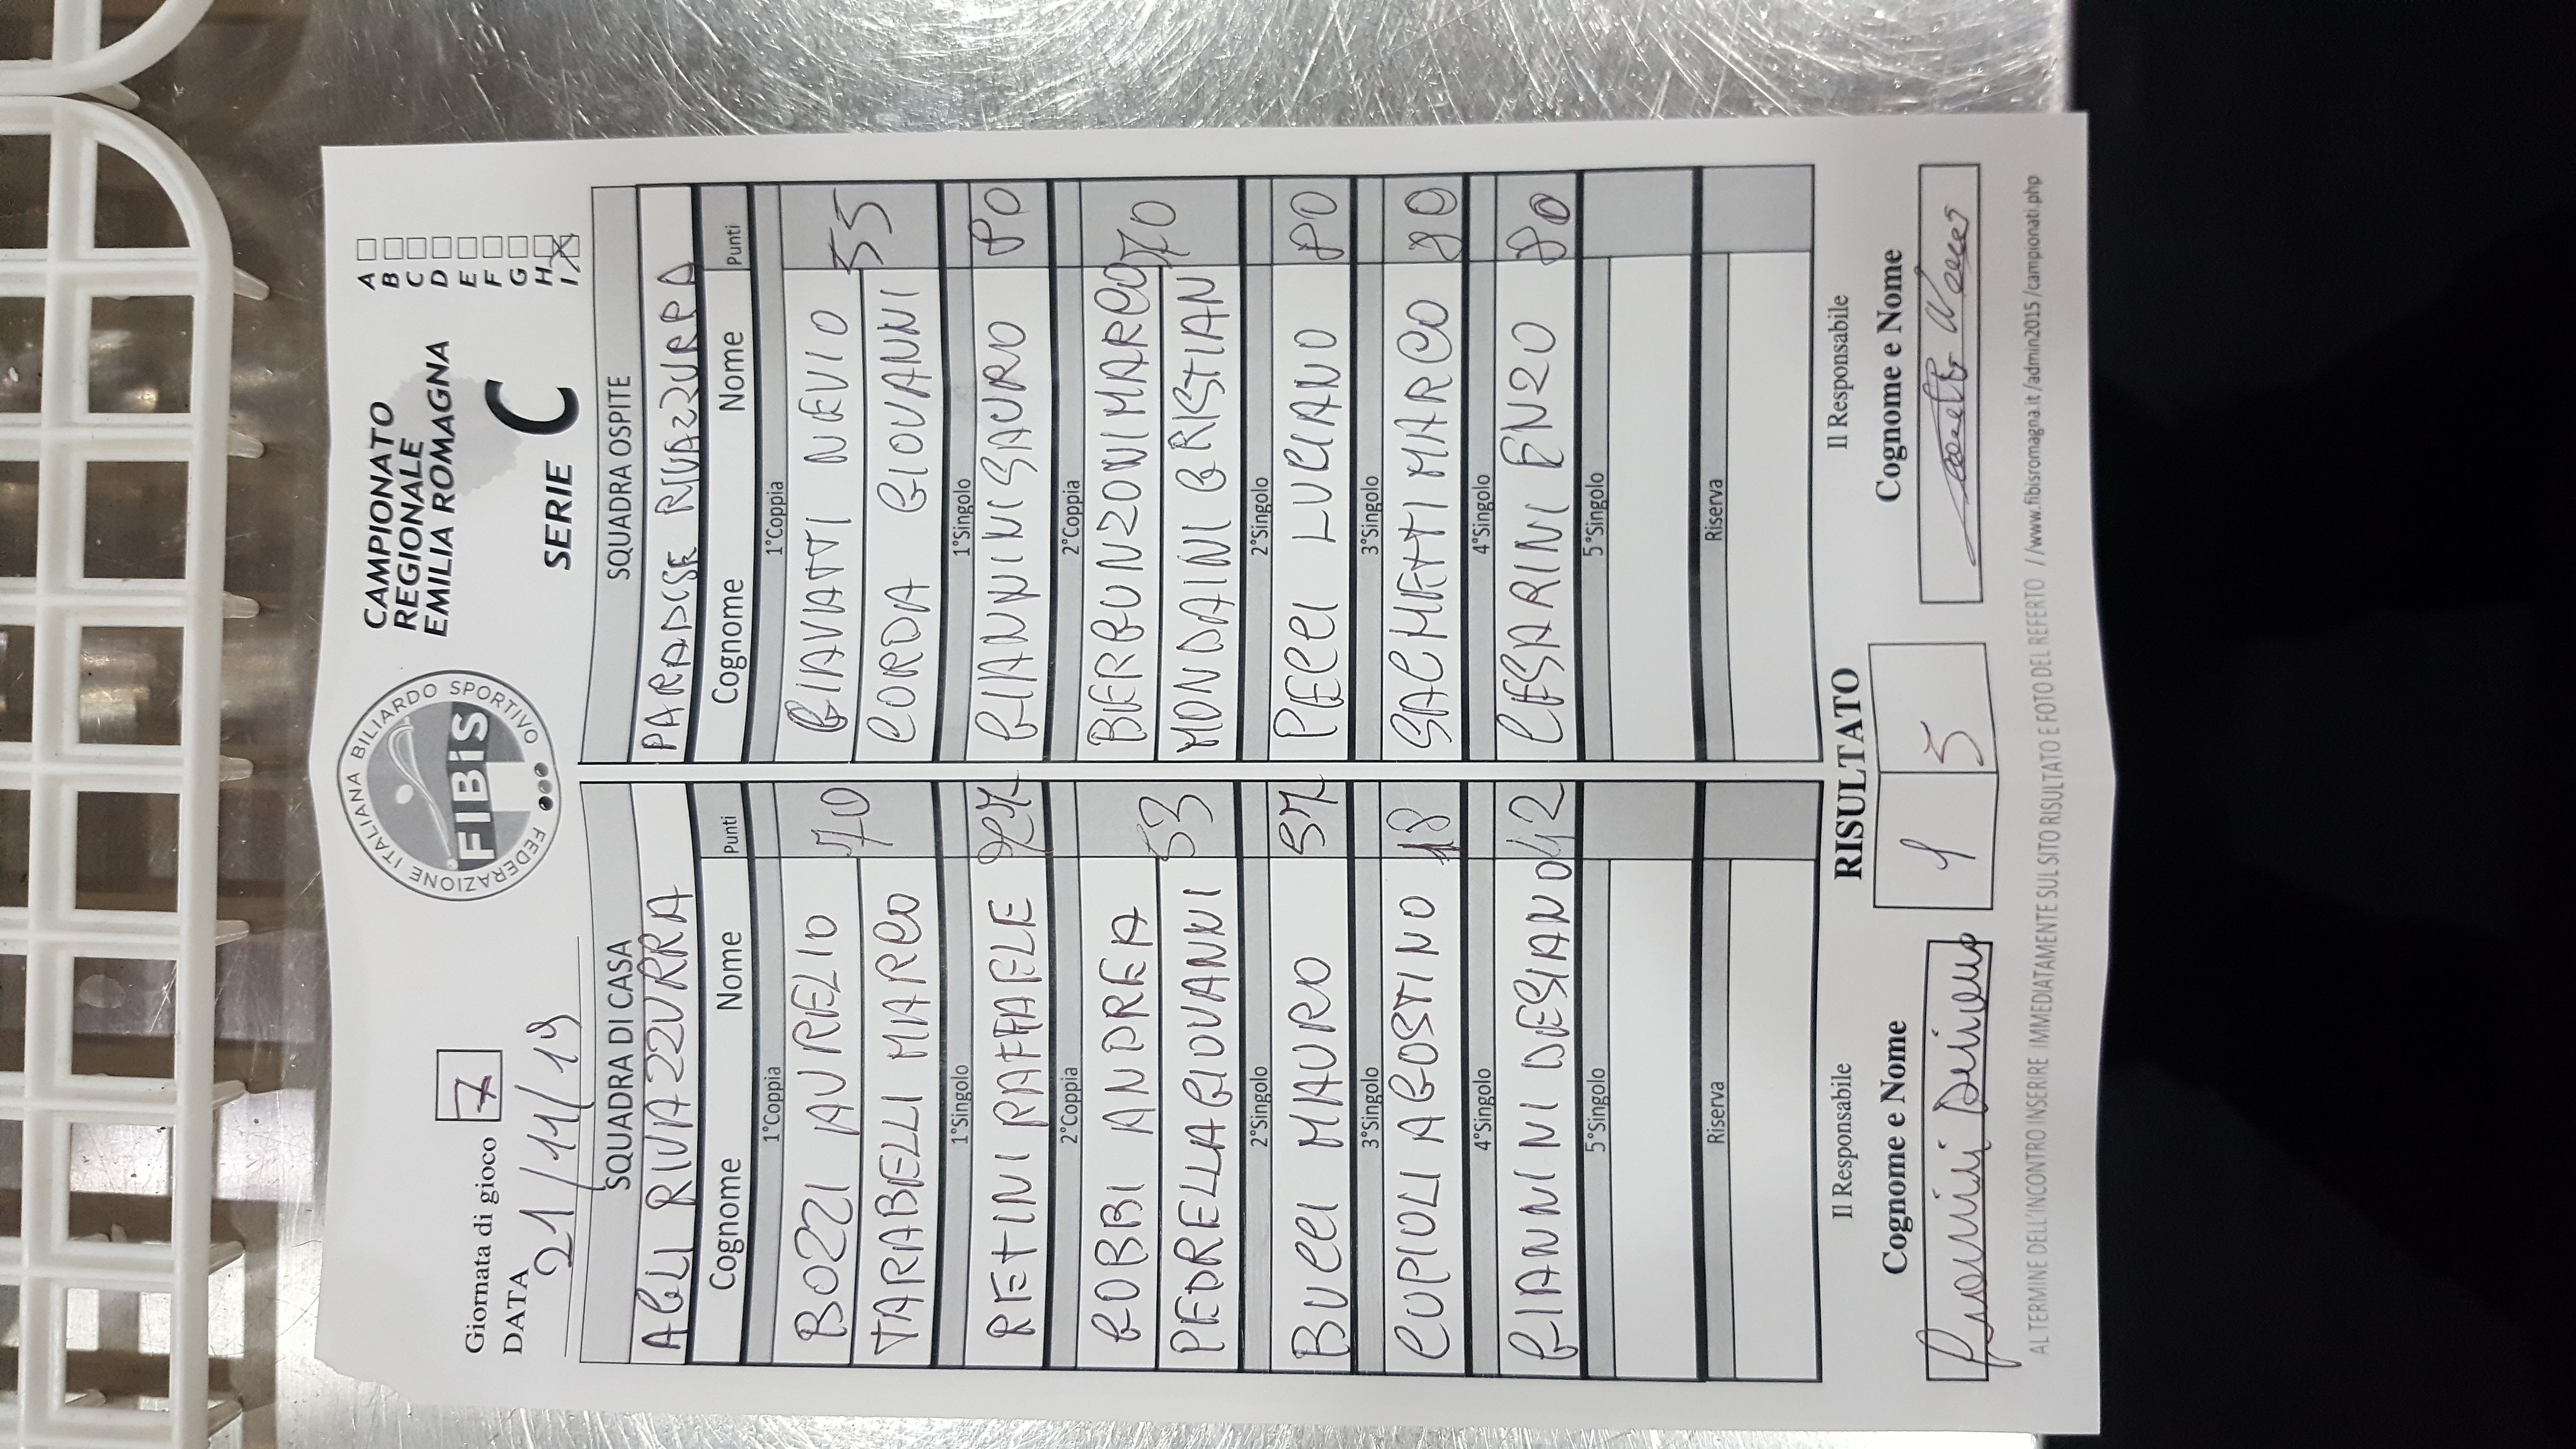 Giornata di gioco 7
DATA
21/11/19
FEDERAZIONE ITALIANA BILIARDO SPORTIVO
FIBiS
CAMPIONATO
REGIONALE
EMILIA ROMAGNA
SERIE C
A
B
C
D
E
F
G
H
I X
SQUADRA DI CASA SQUADRA OSPITE
AGLI RIVAZZURRA PARADISE RIVAZZURRA
Cognome Nome Punti Cognome Nome Punti
1°Coppia 1°Coppia
BOZZI AURELIO 70 GIAVATTI NEVIO 55
TARABELLI MARCO CORDA GIOVANNI
1°Singolo 1°Singolo
RETINI RAFFAELE GIANNINI SAURO 80
2°Coppia 2°Coppia
GOBBI ANDREA 53 BERGUNZONI MARCO 70
PEDRELLA GIOVANNI MONDAINI CRISTIAN
2°Singolo 2°Singolo
BUCCI MAURO 57 PECCI LUCIANO 80
3°Singolo 3°Singolo
CUPIOLI AGOSTINO 18 SACHETTI MARCO 80
4°Singolo 4°Singolo
GIANNINI DESIANO 42 CESARINI ENZO 80
5°Singolo 5°Singolo
Riserva Riserva
Il Responsabile RISULTATO Il Responsabile
Cognome e Nome 1 5 Cognome e Nome
AL TERMINE DELL'INCONTRO INSERIRE IMMEDIATAMENTE SUL SITO RISULTATO E FOTO DEL REFERTO //www.fibisromagna.it/admin2015/campionati.php